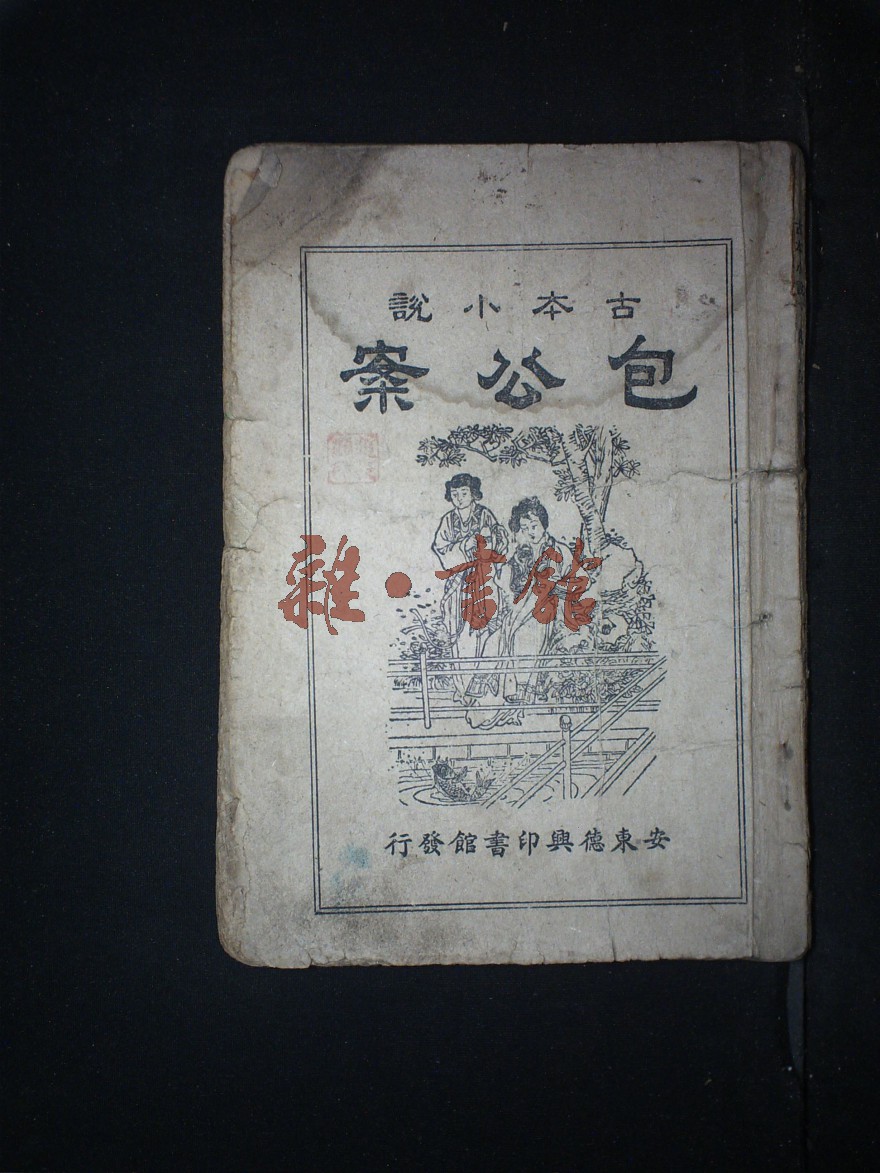 古本小說
包公案
雜·書館
安東德興印書館發行